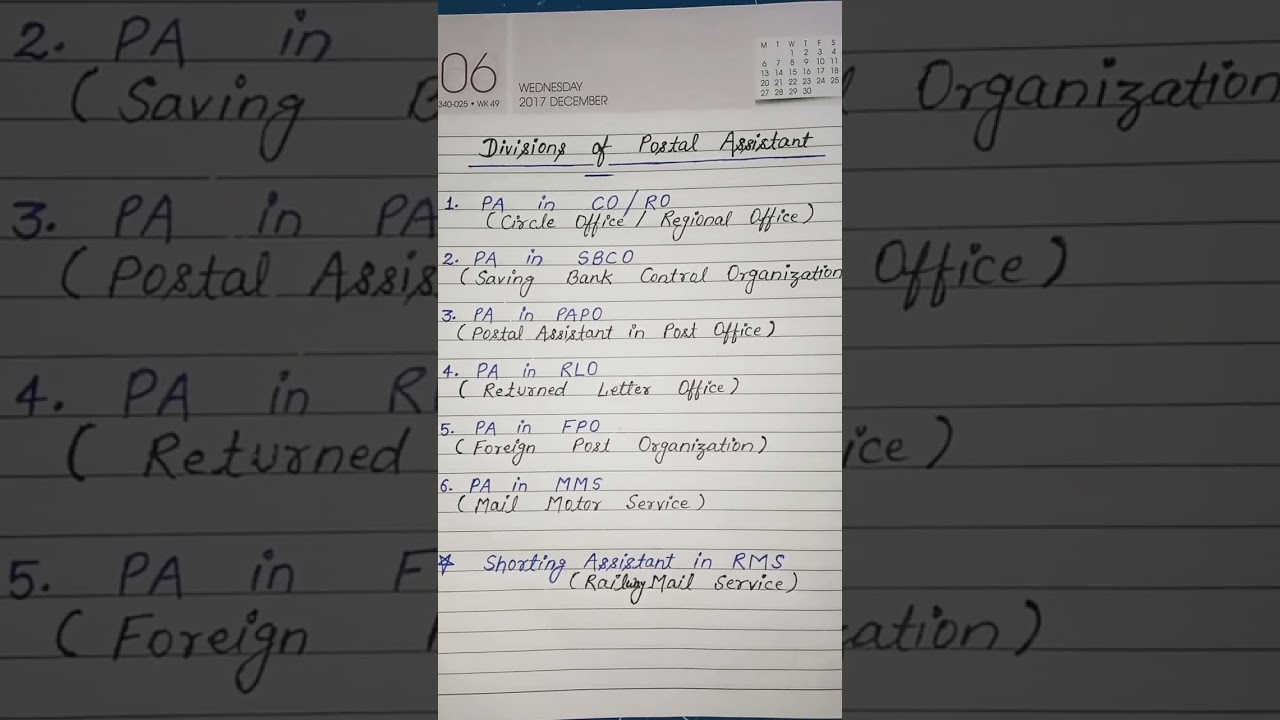 06
340-025 • WK 49
WEDNESDAY
2017 DECEMBER
M T W T F S
1 2 3 4
6 7 8 9 10 11
13 14 15 16 17 18
20 21 22 23 24 25
27 28 29 30
Divisions of Postal Assistant
1. PA in CO / RO
(Circle Office / Regional Office)
2. PA in SBCO
(Saving Bank Control Organization
3. PA in PAPO
(Postal Assistant in Post Office)
4. PA in RLO
(Returned Letter Office)
5. PA in FPO
(Foreign Post Organization)
6. PA in MMS
(Mail Motor Service)
☆ Shorting Assistant in RMS
(Railway Mail Service)
2. PA in
(Saving
Organization
3. PA in PA
(Postal Assis
Office)
4. PA in R
(Returned
ice)
5. PA in F
(Foreign
zation)